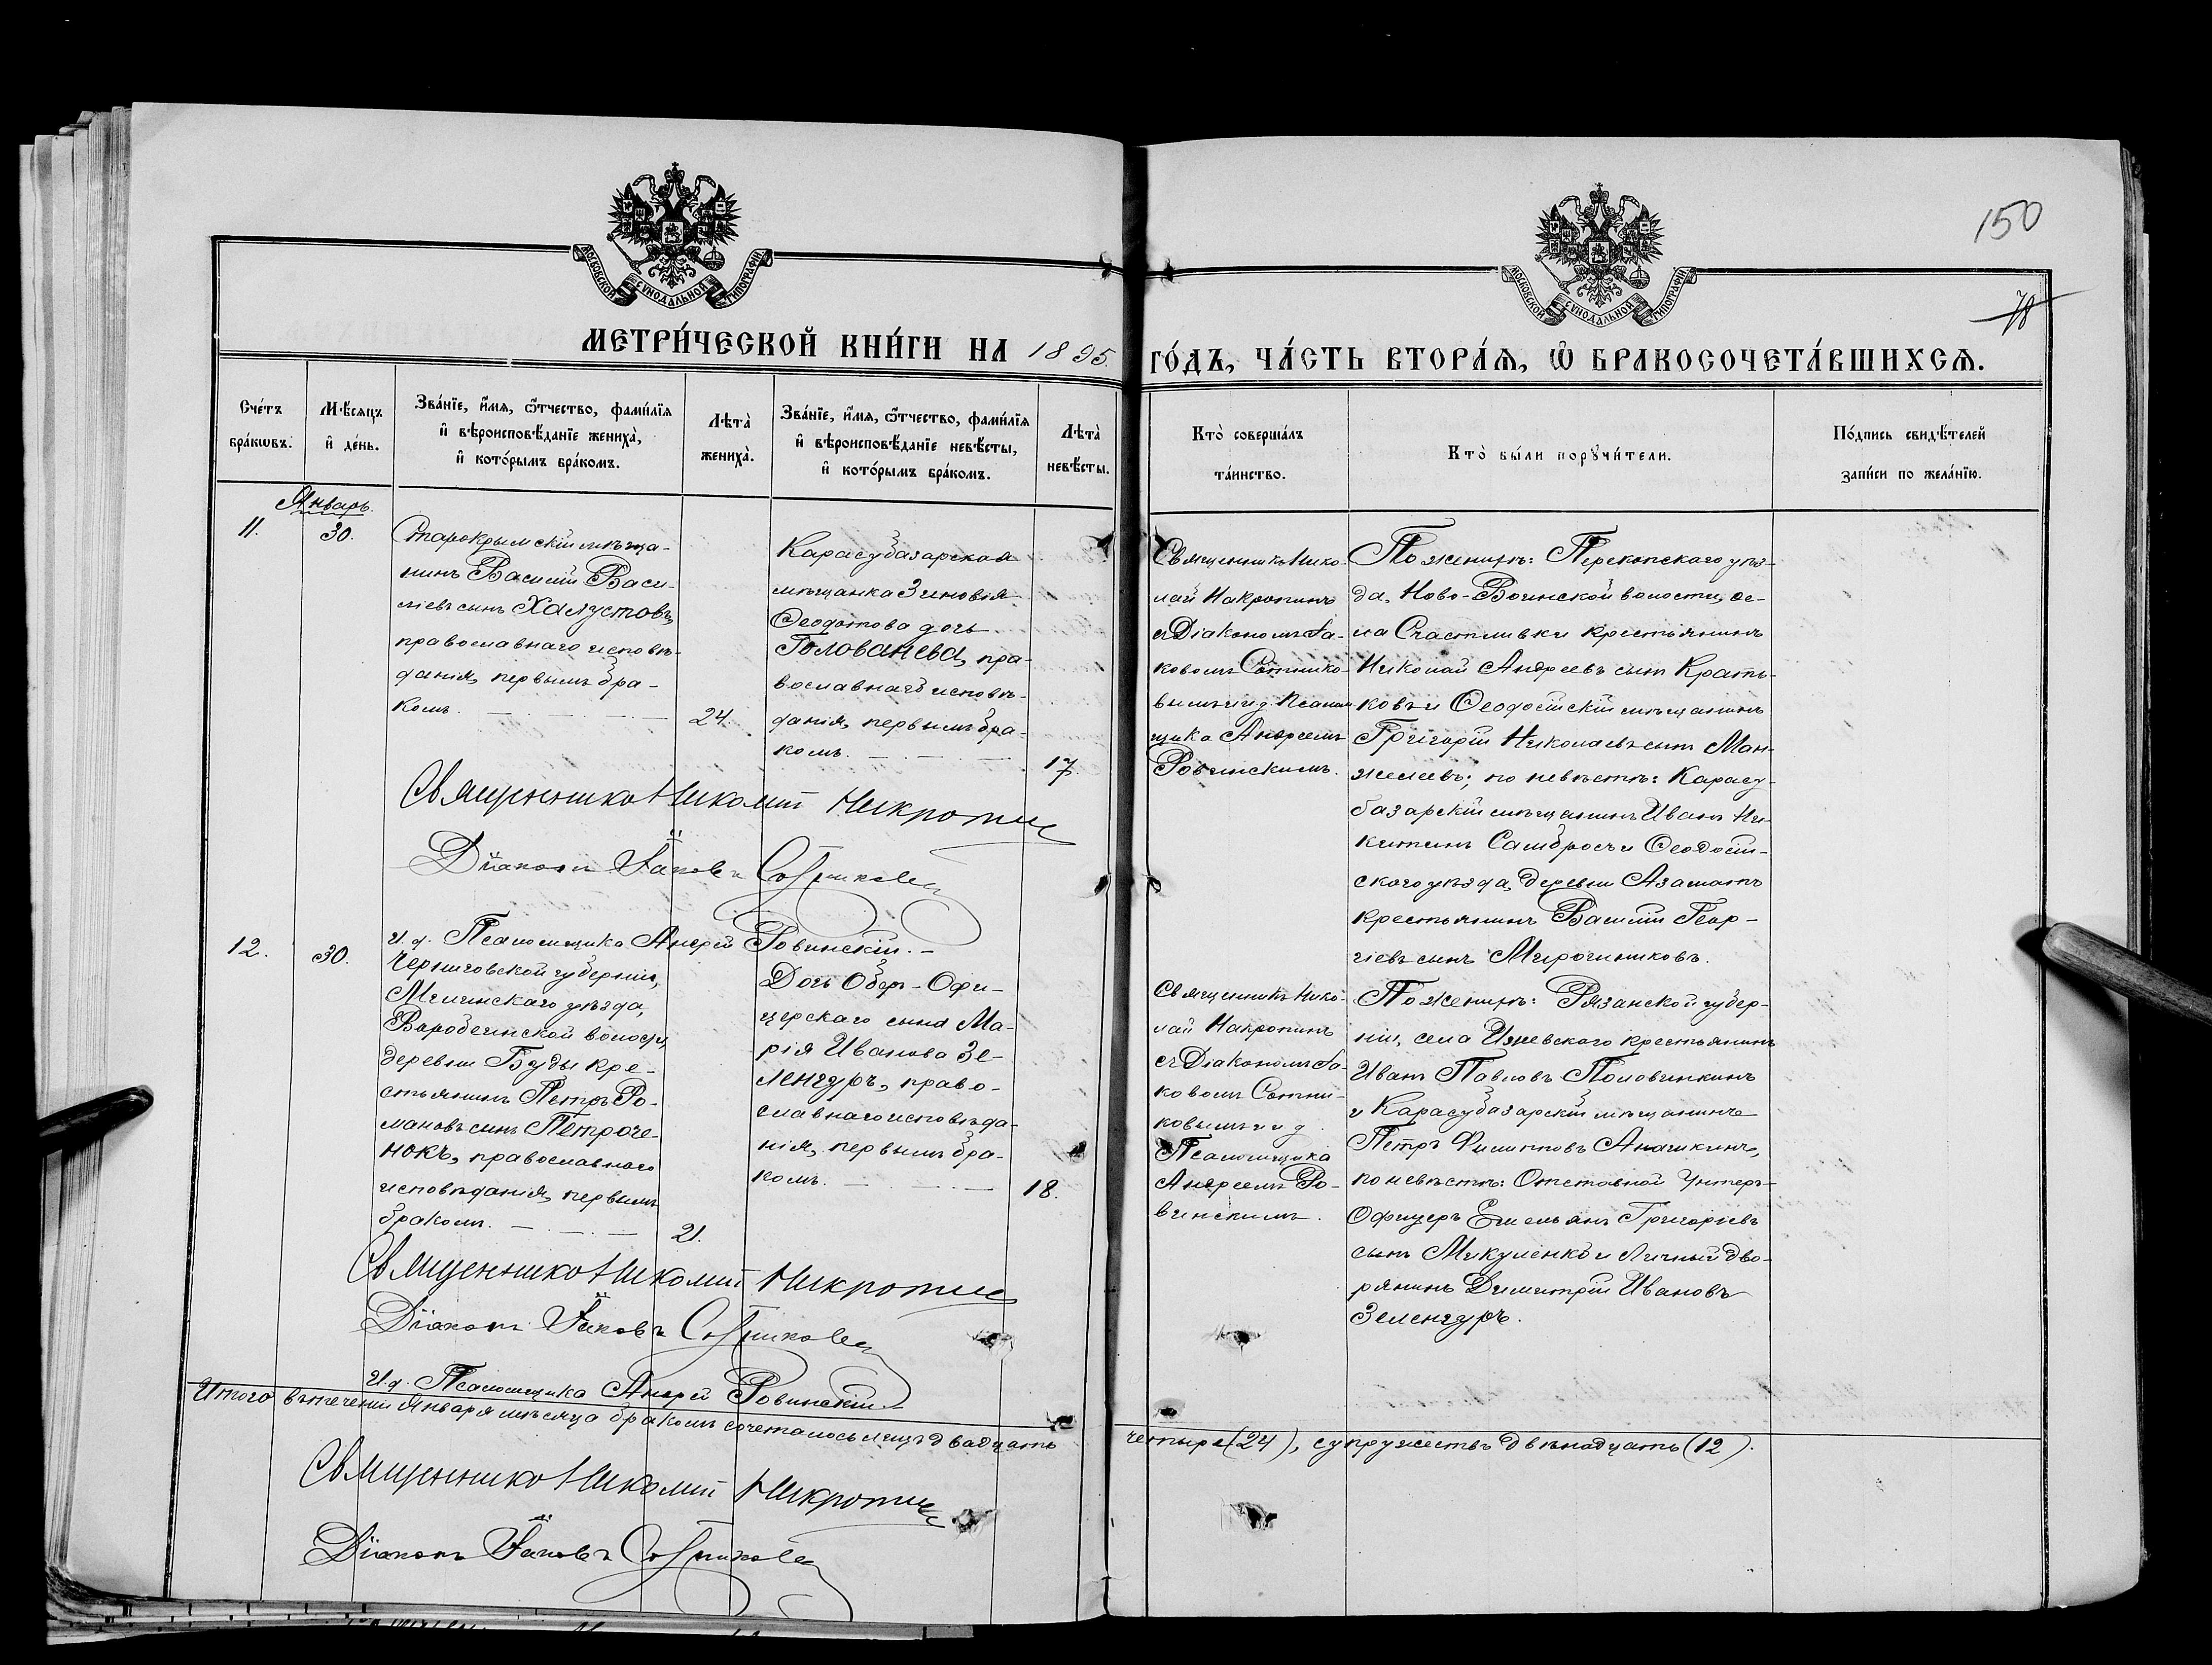 150
78
МОСКОВСКОЙ СѴНОДАЛЬНОЙ ТИПОГРАФІИ
МОСКОВСКОЙ СѴНОДАЛЬНОЙ ТИПОГРАФІИ
МЕТРИ́ЧЕСКОЙ КНИ́ГИ НА 1895. ГО́ДЪ, ЧА́СТЬ ВТОРА́Ѧ, Ѽ БРАКОСОЧЕТА́ВШИХСѦ.
Сче́тъ бра́кѡвъ.
Мѣ́сяцъ и҆ де́нь.
Зва́нїе, и҆́мя, ѻ҆́тчество, фами́лїя
и҆ вѣроисповѣ́данїе жениха̀,
и҆ кото́рымъ бра́комъ.
Лѣта̀ жениха̀.
Зва́нїе, и҆́мя, ѻ҆́тчество, фами́лїя
и҆ вѣроисповѣ́данїе невѣ́сты,
и҆ кото́рымъ бра́комъ.
Лѣта̀ невѣ́сты.
Кто̀ соверша́лъ
та́инство.
Кто̀ бы́ли порꙋчи́тели.
По́дпись свидѣ́телей
за́писи по жела́нїю.
Январь.
11.
30.
Старокрымскій мѣща-
нинъ Василій Васи-
ліевъ сынъ Халустовъ,
православнаго исповѣ-
данія, первымъ бра-
комъ.
24.
Карасубазарская
мѣщанка Зиновія
Ѳеодотова дочь
Голованева, пра-
вославнаго исповѣ-
данія, первымъ бра-
комъ.
17.
Священникъ Нико-
лай Накропинъ
съ Діакономъ Іа-
ковомъ Сотнико-
вымъ и и д. Псалом-
щика Андреемъ
Ровинскимъ.
По женихѣ: Перекопскаго уѣз-
да, Ново-Воинской волости, се-
ла Счастливки крестьянинъ
Николай Андреевъ сынъ Крать-
ковъ и Ѳеодосійскій мѣщанинъ
Григорій Николаевъ сынъ Ман-
желеевъ; по невѣстѣ: Карасу-
базарскій мѣщанинъ Иванъ Ни-
китинъ Самбросъ и Ѳеодосій-
скаго уѣзда, деревни Азаматъ
крестьянинъ Василій Геор-
гіевъ сынъ Мирочниковъ.
Священникъ Николай Накропинъ
Діаконъ Іаковъ Сотниковъ
И. д. Псаломщика Андрей Ровинскій.
12.
30.
Черниговской губерніи,
Мглинскаго уѣзда,
Воробеинской волости,
деревни Буды кре-
стьянинъ Петръ Ро-
мановъ сынъ Петроче-
нокъ, православнаго
исповѣданія, первымъ
бракомъ.
21.
Дочь Оберъ-Офи-
церскаго сына Ма-
рія Иванова Зе-
ленгуръ, право-
славнаго исповѣда-
нія, первымъ бра-
комъ.
18.
Священникъ Нико-
лай Накропинъ
съ Діакономъ Іа-
ковомъ Сотни-
ковымъ и и д.
Псаломщика
Андреемъ Ро-
винскимъ.
По женихѣ: Рязанской губер-
ніи, села Ижевскаго крестьянинъ
Иванъ Павловъ Половинкинъ
и Карасубазарскій мѣщанинъ
Петръ Филипповъ Аначкинъ,
по невѣстѣ: Отставной Унтеръ-
Офицеръ Емельянъ Григорьевъ
сынъ Микуленко и Личный дво-
рянинъ Димитрій Ивановъ
Зеленгуръ.
Священникъ Николай Накропинъ
Діаконъ Іаковъ Сотниковъ
И. д. Псаломщика Андрей Ровинскій.
Итого въ теченіи Января мѣсяца бракомъ сочеталось лицъ двадцать четыре (24), супружествъ двѣнадцать (12).
Священникъ Николай Накропинъ
Діаконъ Іаковъ Сотниковъ